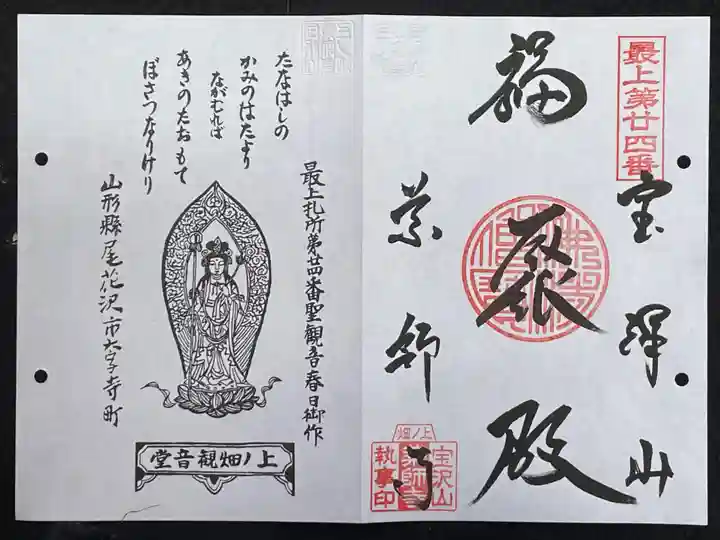 最上第廿四番
宝澤山
福聚殿
薬師寺
上ノ畑
宝沢山
薬師寺
執事印
最上札所第廿四番聖観音春日御作
たなはしの
かみのはたより
ながむれば
あきのたおもて
ぼさつなりけり
山形縣尾花沢市大字寺町
上ノ畑観音堂